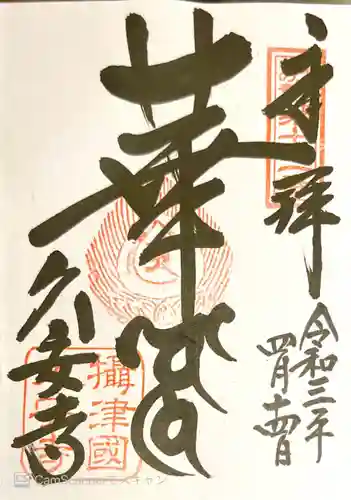 奉拝
令和三年
四月十四日
華
久安寺
攝津國
CamScanner でスキャン